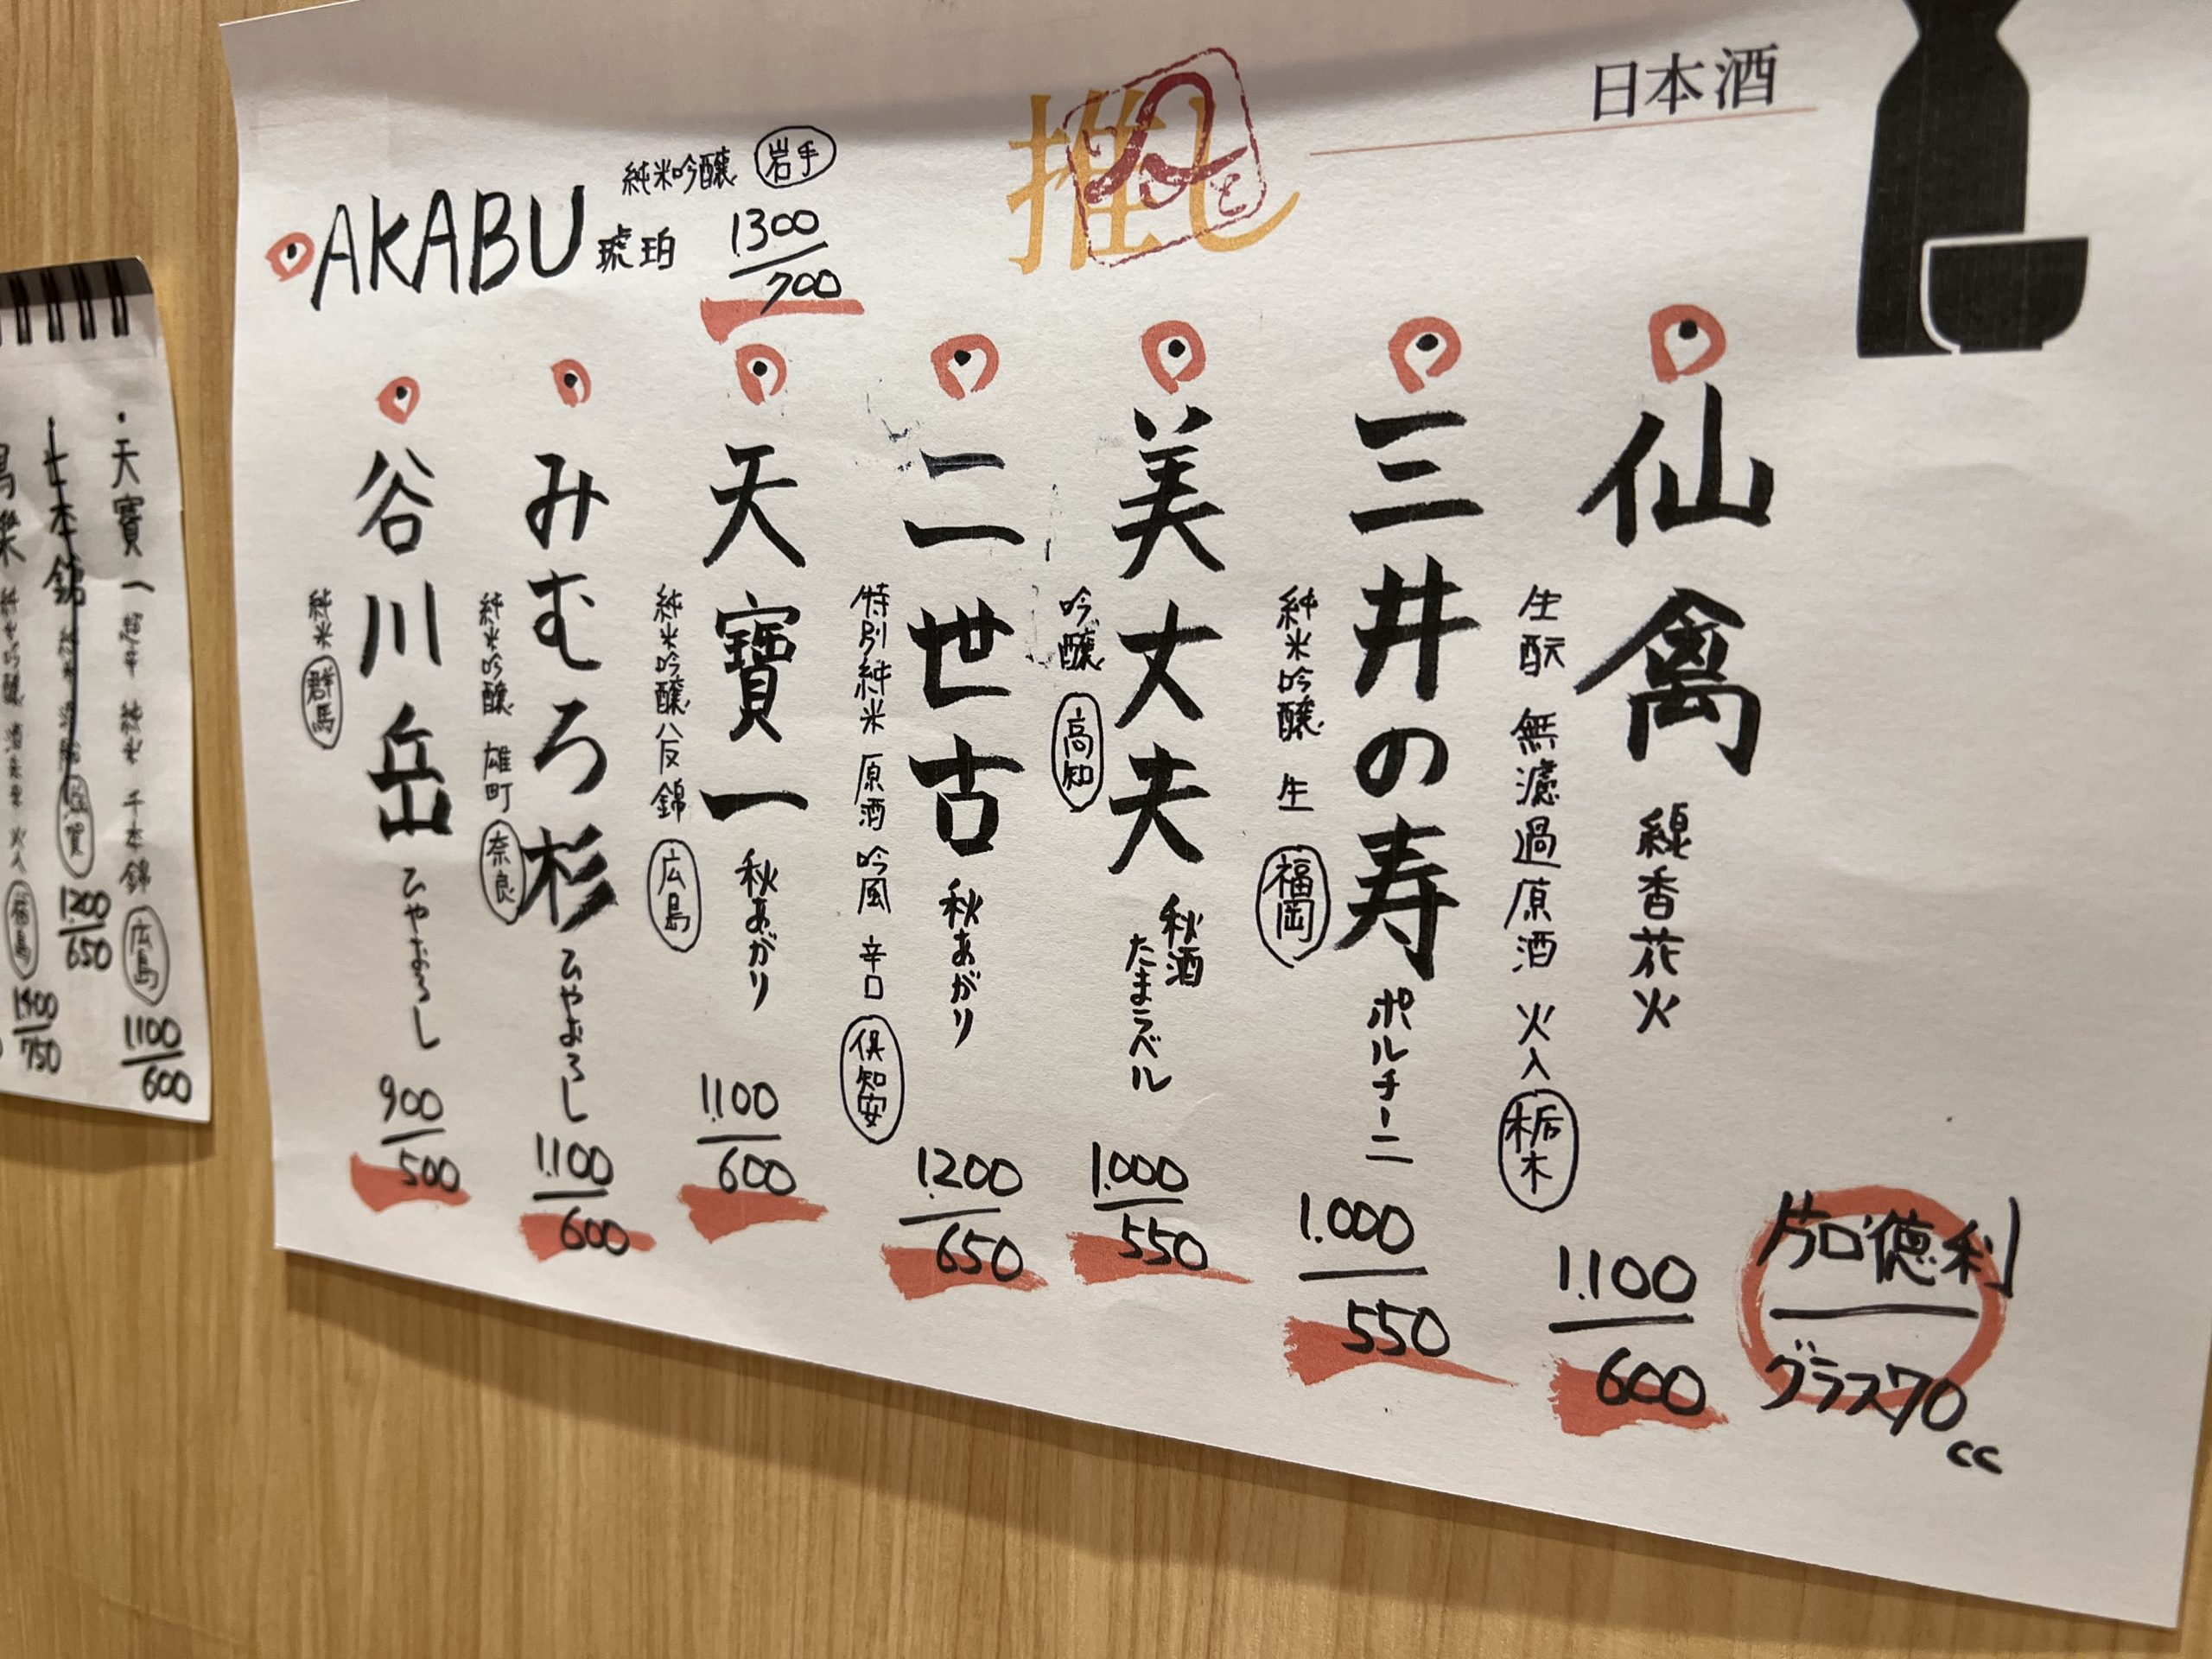 日本酒
推し
仙禽 線香花火
生酛 無濾過原酒 火入 栃木
1.100
600
三井の寿 ポルチーニ
純米吟醸 生 福岡
1.000
550
美丈夫 秋酒
たまラベル
吟醸 高知
1.000
550
二世古 秋あがり
特別純米 原酒 吟風 辛口 倶知安
1.200
650
天寶一 秋あがり
純米吟醸 八反錦 広島
1.100
600
みむろ杉 ひやおろし
純米吟醸 雄町 奈良
1.100
600
谷川岳 ひやおろし
純米 群馬
900
500
AKABU 琥珀
純米吟醸 岩手
1300
700
片口徳利
グラス70cc
・天寶一 超辛 純米 千本錦 広島
1.100
600
七本錦 純米
1.200
650
純米吟醸 火入 福島
1400
750